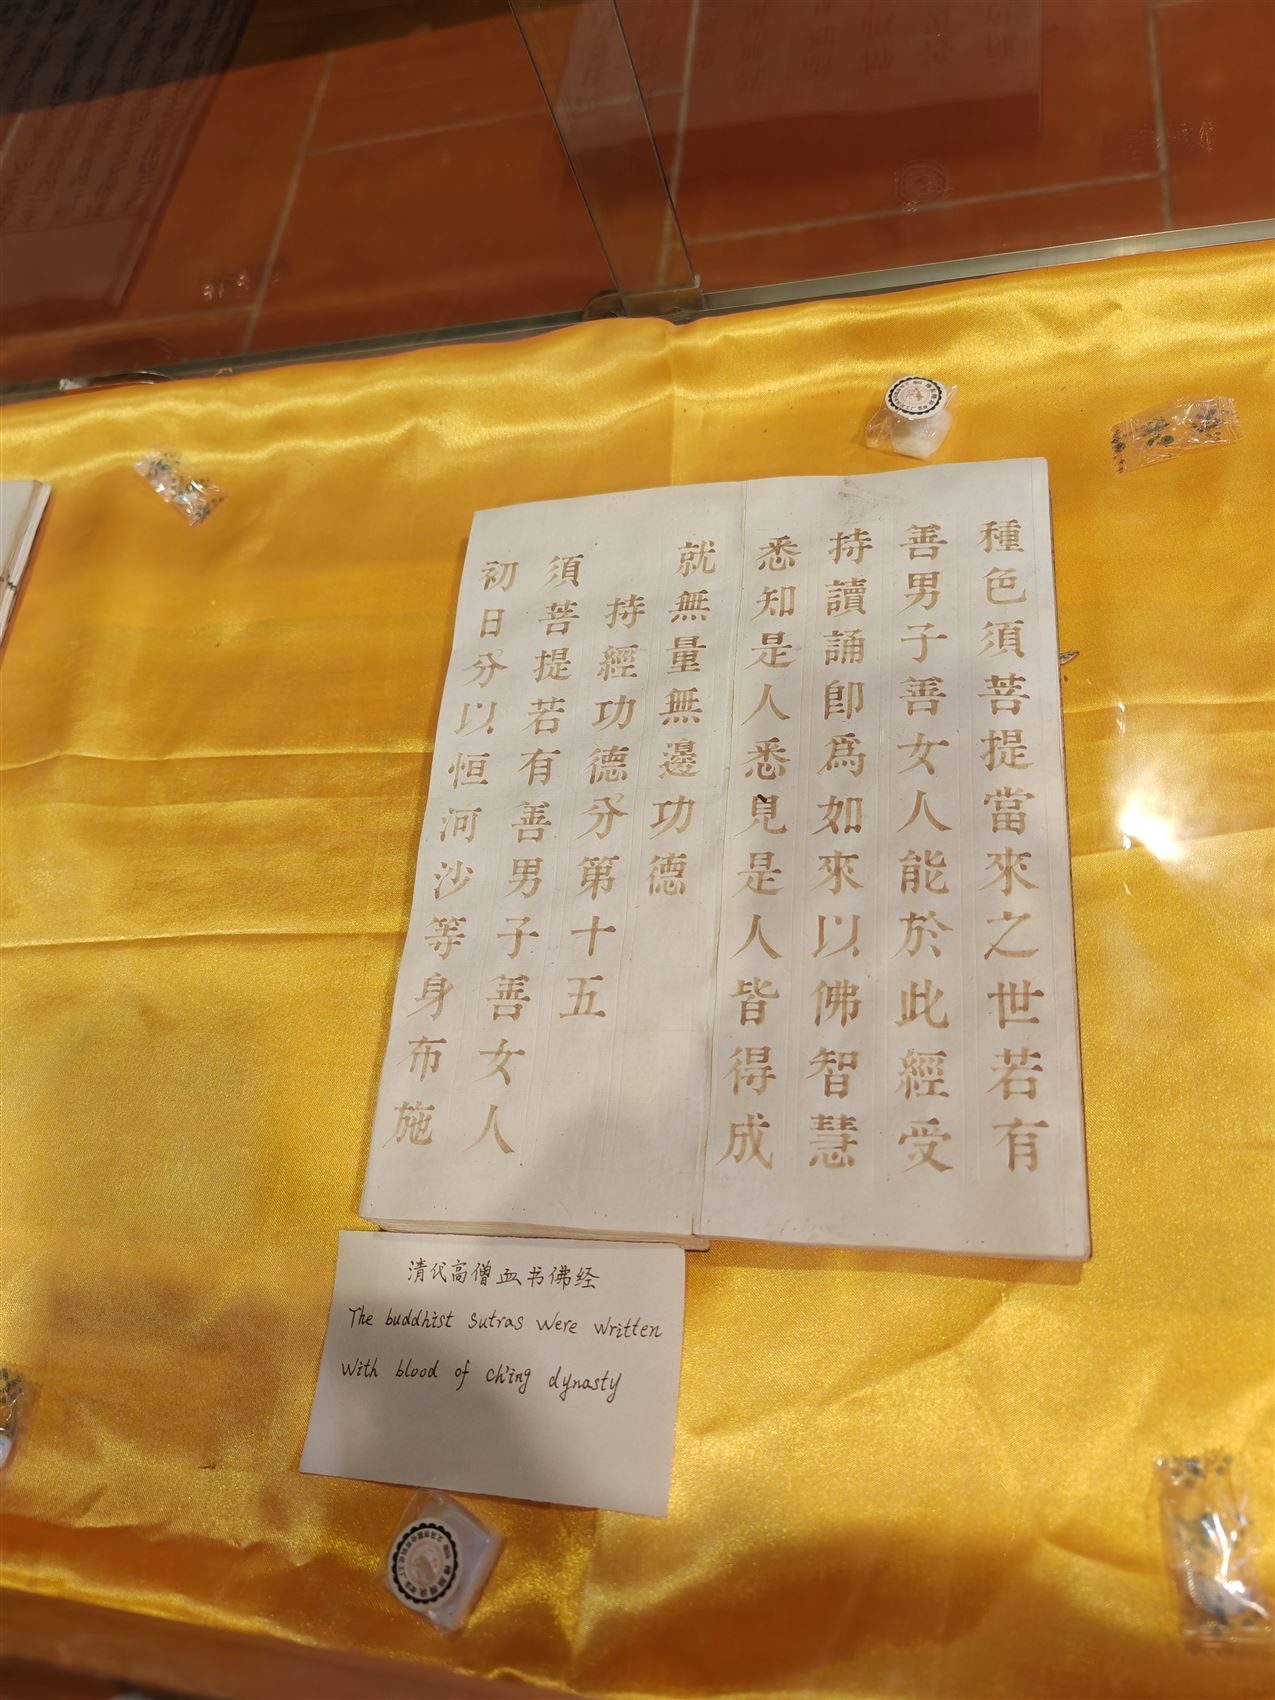 種色須菩提當來之世若有
善男子善女人能於此經受
持讀誦即爲如來以佛智慧
悉知是人悉見是人皆得成
就無量無邊功德
持經功德分第十五
須菩提若有善男子善女人
初日分以恒河沙等身布施
清代高僧血书佛经
The buddhist sutras were written
with blood of ch'ing dynasty